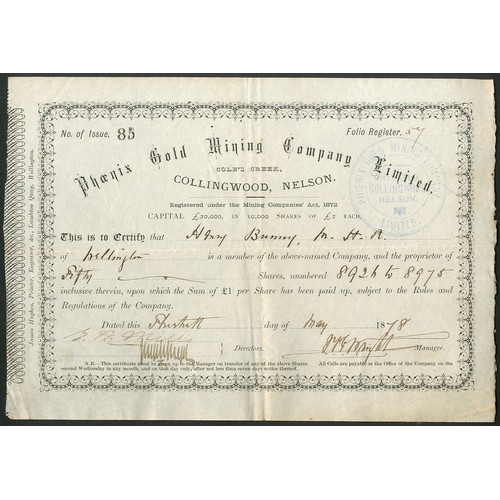 No. of Issue, 85
Folio Register, 57
Phœnix Gold Mining Company Limited.
COLE'S CREEK,
COLLINGWOOD, NELSON.
Registered under the Mining Companies' Act, 1872.
CAPITAL £20,000, IN 10,000 SHARES OF £2 EACH.
This is to Certify that Henry Bunny, M.H.R.
of Wellington is a member of the above-named Company, and the proprietor of
Fifty Shares, numbered 8926 to 8975
inclusive therein, upon which the Sum of £1 per Share has been paid up, subject to the Rules and
Regulations of the Company.
Dated this day of May 1878
Directors. Manager.
N.B.—This certificate must be given up to the Manager on transfer of any of the above Shares. All Calls are payable at the Office of the Company on the
second Wednesday in any month, and on that day only, after not less than seven days notice thereof.
James Hughes, Printer, Engraver, &c., Lambton Quay, Wellington.
PHOENIX GOLD MINING COMPANY
COLLINGWOOD
NELSON
LIMITED